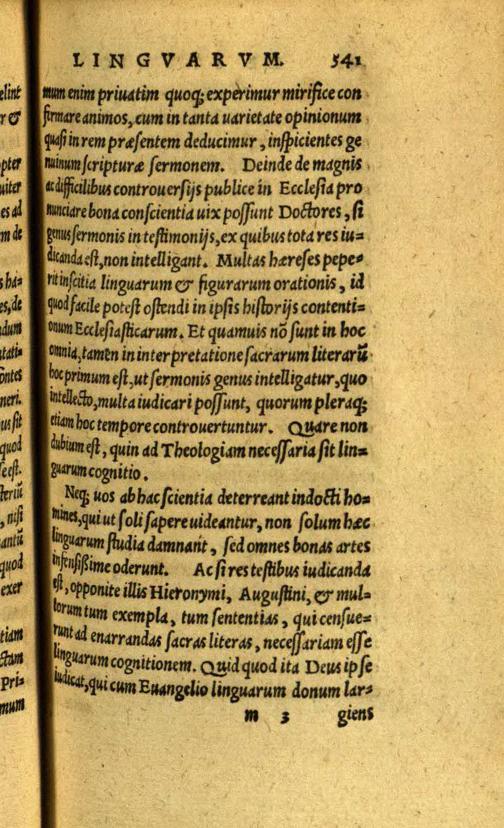 LINGVARVM. 541
mum enim priuatim quoq; experimur mirifice con
firmare animos, cum in tanta varietate opinionum
quasi in rem præsentem deducimur, inspicientes ge
nuinum scripturæ sermonem. Deinde de magnis
ac difficilibus controuersijs publice in Ecclesia pro
nunciare bona conscientia uix possunt Doctores, si
genus sermonis in testimonijs, ex quibus tota res iu=
dicanda est, non intelligant. Multas hæreses pepe=
rit inscitia linguarum & figurarum orationis, id
quod facile potest ostendi in ipsis historijs contenti=
onum Ecclesiasticarum. Et quamuis nõ sunt in hoc
omnia, tamen in interpretatione sacrarum literarũ
hoc primum est, ut sermonis genus intelligatur, quo
intellecto, multa iudicari possunt, quorum pleraq;
etiam hoc tempore controuertuntur. Quare non
dubium est, quin ad Theologiam necessaria sit lin=
guarum cognitio.
Neq; uos ab hac scientia deterreant indocti ho=
mines, qui ut soli sapere uideantur, non solum hæc
linguarum studia damnant, sed omnes bonas artes
infensissime oderunt. Ac si res testibus iudicanda
est, opponite illis Hieronymi, Augustini, & mul=
torum tum exempla, tum sententias, qui censue=
runt ad enarrandas sacras literas, necessariam esse
linguarum cognitionem. Quid quod ita Deus ipse
iudicat, qui cum Euangelio linguarum donum lar=
m 3 giens